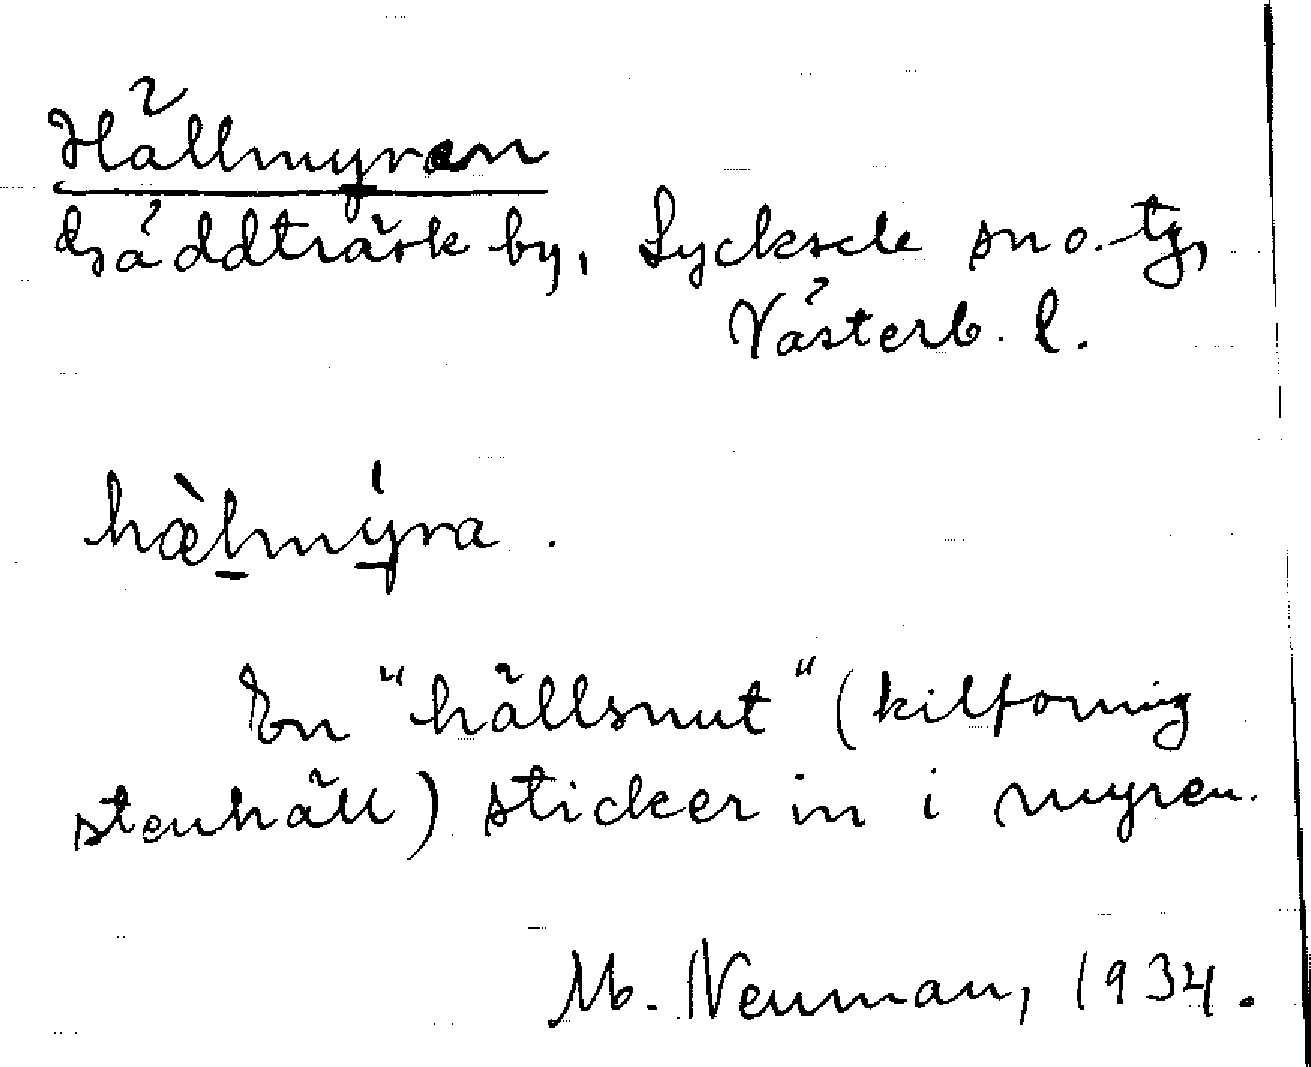 Hällmyran
Gäddträsk by, Lycksele sn o. tg,
Västerb. l.
hæ̀lmy̍ra.
En "hällsnut" (kilformig
stenhäll) sticker in i myren.
M. Neuman, 1934.